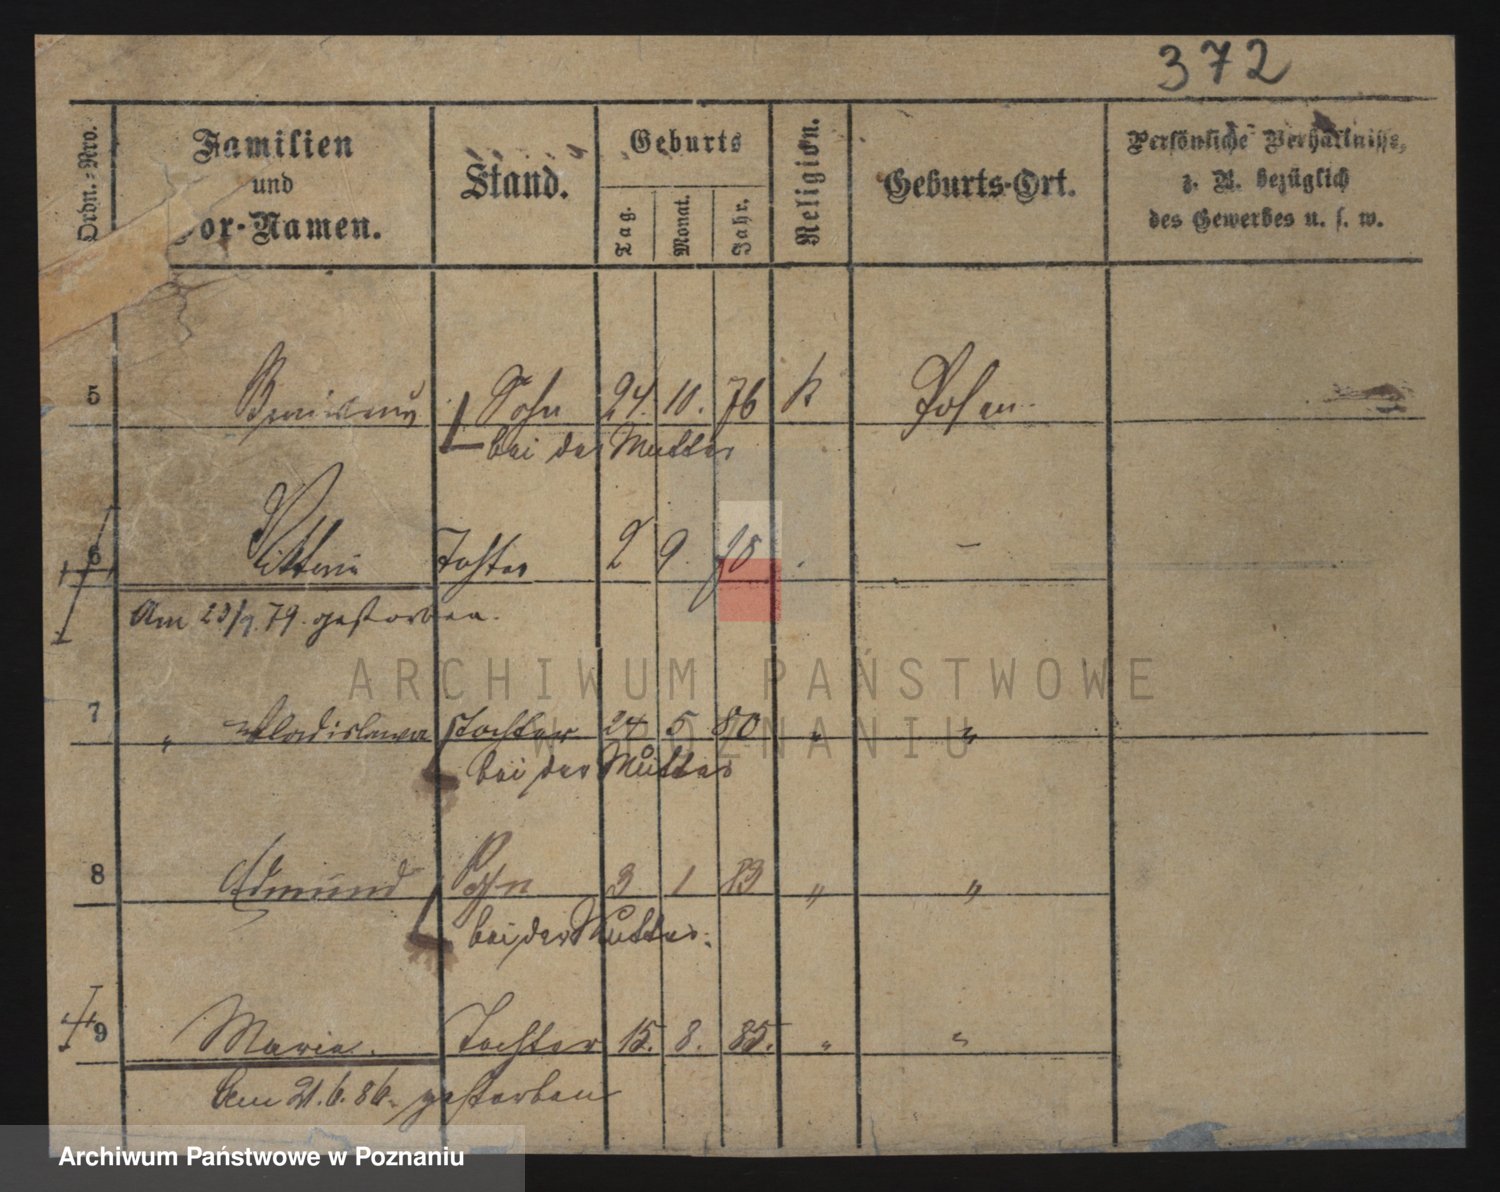 372
Ordn.-Nro.
Familien
und
Vor-Namen.
Stand.
Geburts
Tag.
Monat.
Jahr.
Religion.
Geburts-Ort.
Persönliche Verhältnisse,
z. B. bezüglich
des Gewerbes u. s. w.
5 Sohn 24. 10. 76 k Posen
bei der Mutter
6 Tochter 2 9. –
Am 23/9. 79. gestorben.
7 " Wladislawa Tochter 24 5 80 " "
bei der Mutter
8 Edmund Sohn 3 1 83 " "
bei der Mutter.
9 Maria. Tochter 15. 8. 85. " "
Am 21.6.86. gestorben
ARCHIWUM PAŃSTWOWE
W POZNANIU
Archiwum Państwowe w Poznaniu